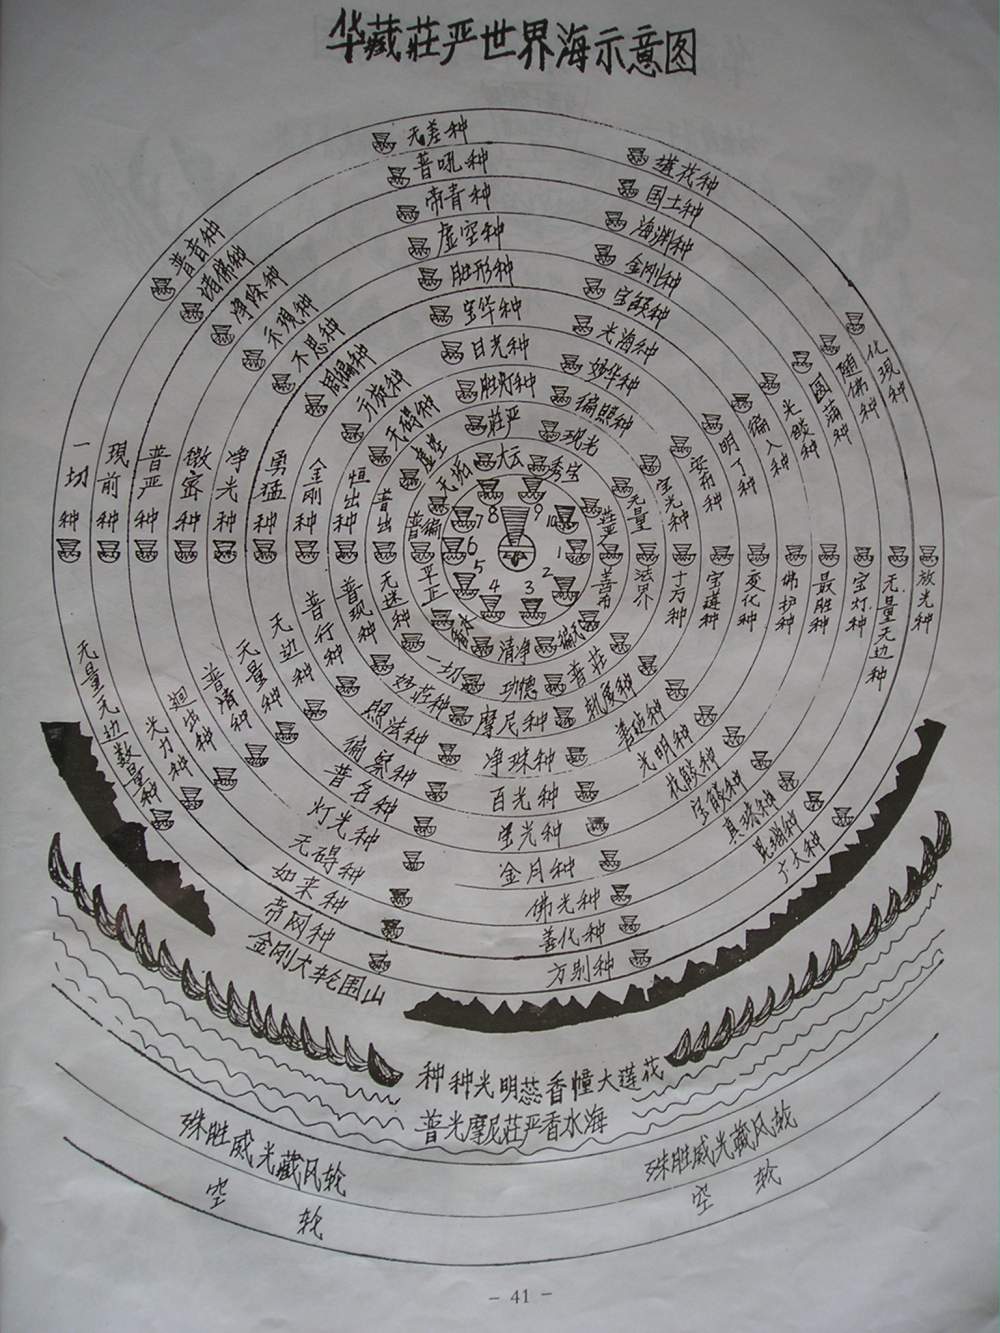 华藏莊严世界海示意图
无差种
普吼种
帝青种
虚空种
胜形种
宝华种
日光种
胜灯种
莊严
大云
国土种
海渊种
金刚种
宝燄种
光海种
妙华种
徧照种
现光
秀宝
普音种
诸佛种
净除种
示現种
不思种
周徧种
无碍种
虚空
无垢
化現种
随佛种
圆满种
光燄种
徧入种
明了种
安布种
宝光种
无量
一切种
現前种
普严种
微密种
净光种
勇猛种
金刚种
恒出种
普出
普徧
8
9
10
7
6
1
5
4
3
2
放光种
无量无边种
宝灯种
最胜种
佛护种
变化种
宝莲种
十方种
法界
善布
平正
无迷种
普现种
普行种
无边种
无量种
普清种
迴出种
光力种
无量无边数量种
清净
一切
功德
普莊
妙莊种
摩尼种
照法种
净珠种
百光种
宝光种
金月种
佛光种
善化种
方别种
光明种
宝燄种
真珠种
普名种
灯光种
无碍种
如来种
帝网种
广大种
金刚大轮围山
种种光明蕊香幢大莲花
普光摩尼莊严香水海
殊胜威光藏风轮
殊胜威光藏风轮
空轮
空轮
- 41 -